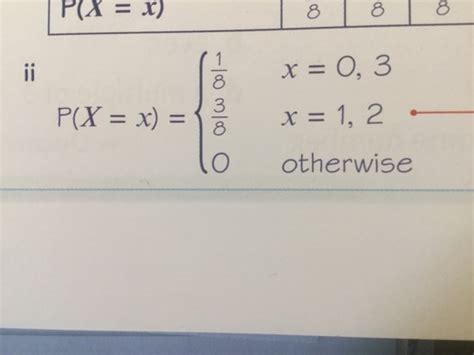 P(X = x) 8 8 8
ii
1/8 x = 0, 3
P(X = x) = { 3/8 x = 1, 2
0 otherwise